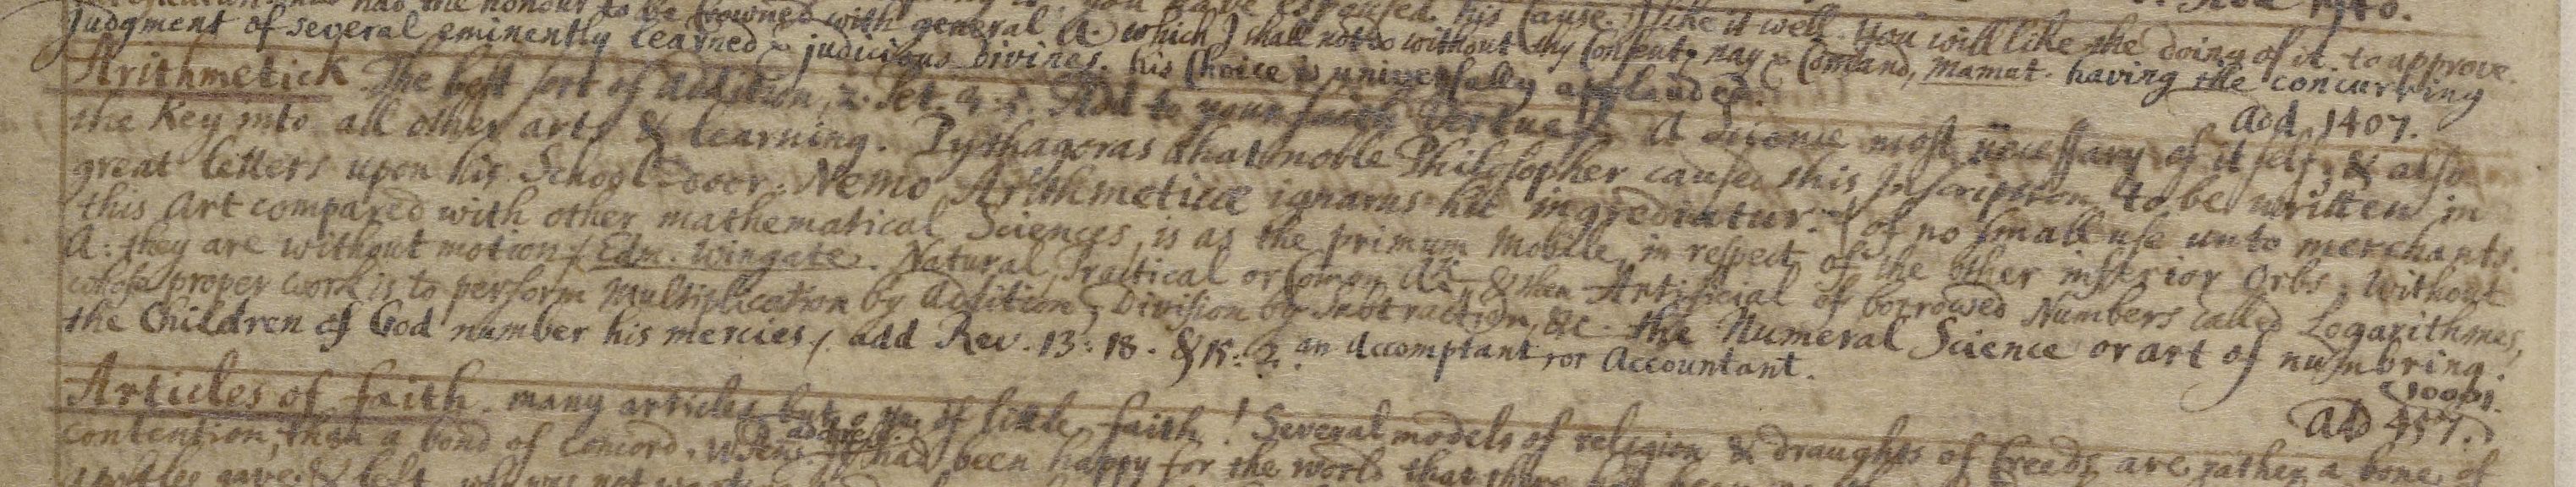 had the honour to be crowned with general A. which I shall not do without thy Consent, nay & Comand, mamat. having the concurring
Judgment of several eminently learned & judicious Divines. his Choice is universally applauded.
you have espoused his Cause. I like it well. You will like the doing of it. to approve.
Add 1407.
Arithmetick The best sort of Addition, 2. Pet. 1. 5. Add to your faith Vertue &c. A Science most necessary of it self, & also
the Key into all other arts & learning. Pythagoras that noble Philosopher caused this Inscription to be written in
great letters upon his School-door: Nemo Arithmeticæ ignarus hic ingrediatur. of no small use unto merchants.
this Art compared with other mathematical Sciences, is as the primum Mobile, in respect of the other inferior Orbs; without
A: they are without motion / Edm. Wingate. Natural, Practical or Comon A. & then Artificial of borrowed Numbers called Logarithmes,
whose proper work is to perform Multiplication by Addition, Division by Subtraction, &c. the Numeral Science or art of numbring.
the Children of God number his mercies /. add Rev. 13: 18. & 15: 2. an Accomptant or Accountant.
Add 457.
Articles of faith. many articles but of little faith! Several models of religion & draughts of Creeds are rather a bone of
contention, then a bond of concord. had been happy for the world that
gave & left